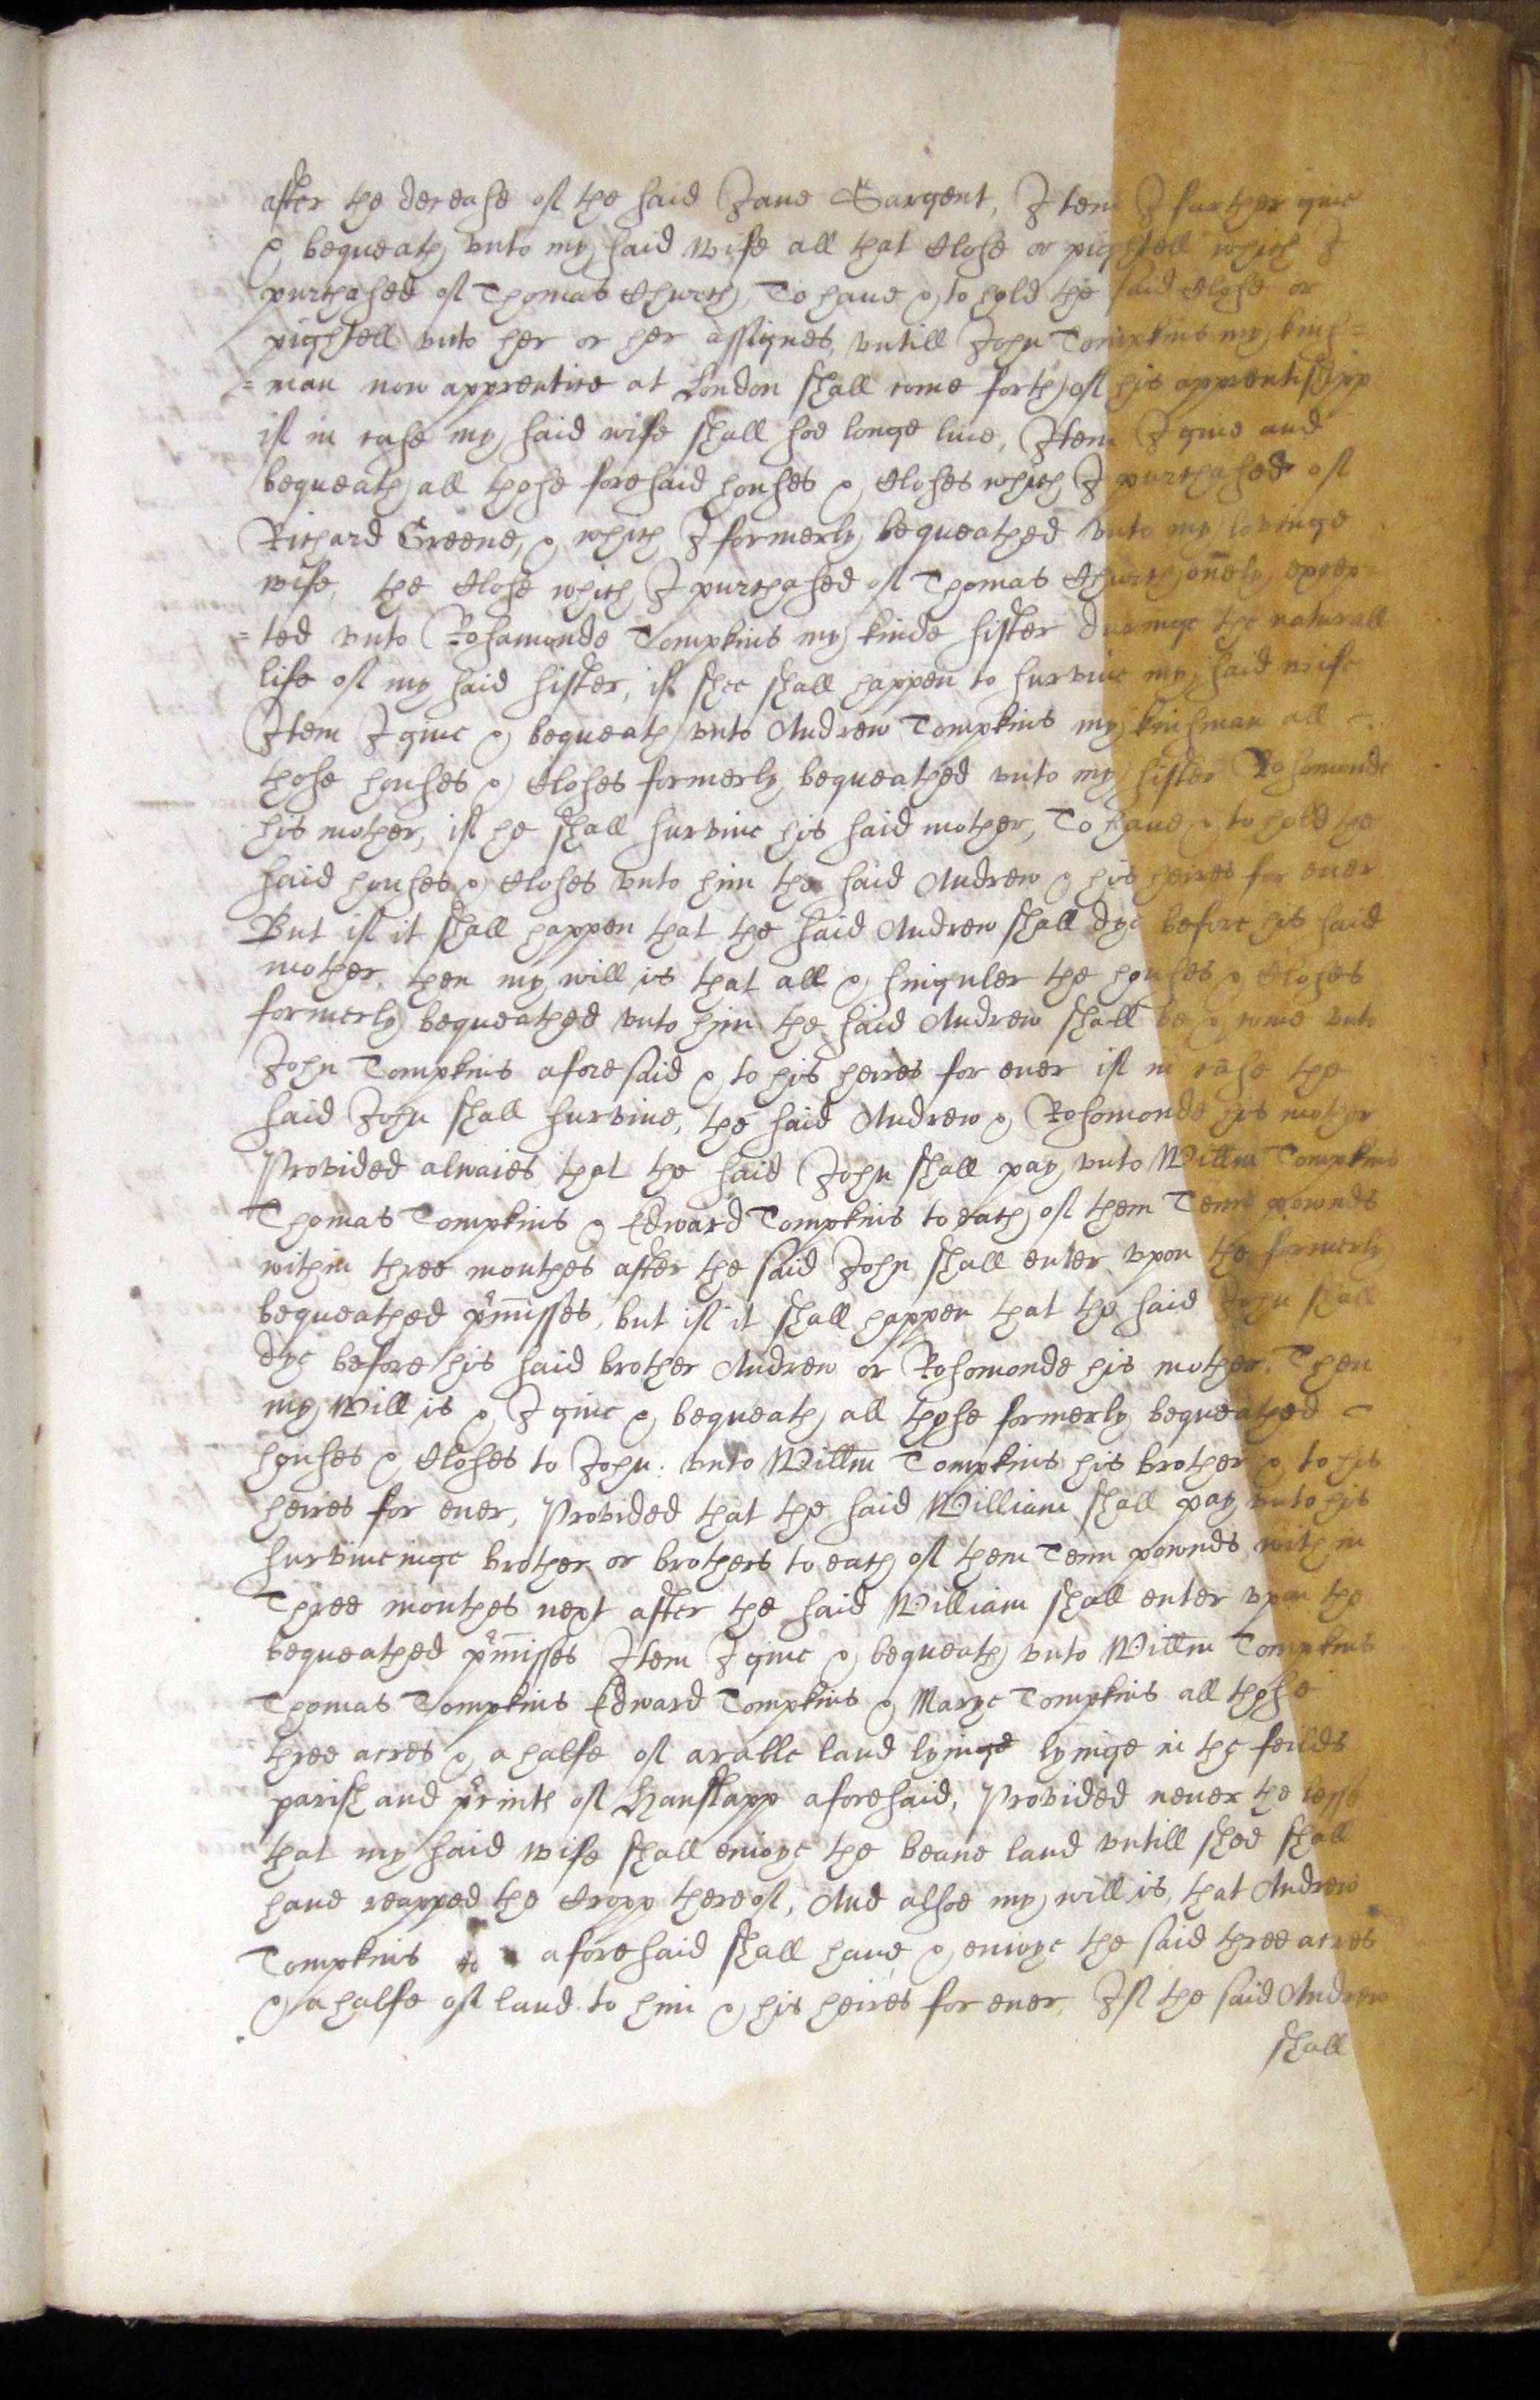 after the decease of the said Jane Sargent, Item I further giue
& bequeath vnto my said wife all that Close or pightell which I
purchased of Thomas Church, To haue & to hold the said Close or
pightell vnto her or her assignes, vntill John Tompkins my kins=
=man now apprentice at London shall come forth of his apprentishipp
if in case my said wife shall soe longe liue, Item I giue and
bequeath all those foresaid houses & Closes which I purchased of
Richard Greene, & which I formerly bequeathed vnto my lovinge
wife, the Close which I purchased of Thomas Church onely excep=
=ted vnto Rosamonde Tompkins my kinde sister duringe the naturall
life of my said sister, if shee shall happen to survive my said wife
Item I giue & bequeath vnto Andrew Tompkins my kinsman all
those houses & Closes formerly bequeathed vnto my sister Rosomonde
his mother, if he shall survive his said mother, To haue & to hold the
said houses & Closes vnto him the said Andrew & his heires for euer
But if it shall happen that the said Andrew shall dye before his said
mother, then my will is that all & singuler the houses & Closes
formerly bequeathed vnto him the said Andrew shall be & come vnto
John Tompkins aforesaid & to his heires for euer if in case the
said John shall survive, the said Andrew & Rosomonde his mother
Provided alwaies that the said John shall pay vnto Willm Tompkins
Thomas Tompkins & Edward Tompkins to each of them Tenn pownds
within three monthes after the said John shall enter vpon the formerly
bequeathed pmisses, but if it shall happen that the said John shall
dye before his said brother Andrew or Rosomonde his mother, Then
my Will is & I giue & bequeath all those formerly bequeathed
houses & Closes to John: vnto Willm Tompkins his brother & to his
heires for euer, Provided that the said William shall pay vnto his
surviueinge brother or brothers to each of them Tenn pownds with in
Three monthes next after the said William shall enter vpon the
bequeathed pmisses Item I giue & bequeath vnto Willm Tompkins
Thomas Tompkins Edward Tompkins & Marye Tompkins all those
three acres & a halfe of arable land lyinge lyinge in the feilds
parish and princts of Hanslapp aforesaid, Provided neuer the lesse
that my said wife shall enioye the beane land vntill shee shall
haue reapped the Cropp thereof, And alsoe my will is, that Andrew
Tompkins aforesaid shall haue & enioye the said three acres
& a halfe of land to him & his heires for euer, If the said Andrew
shall